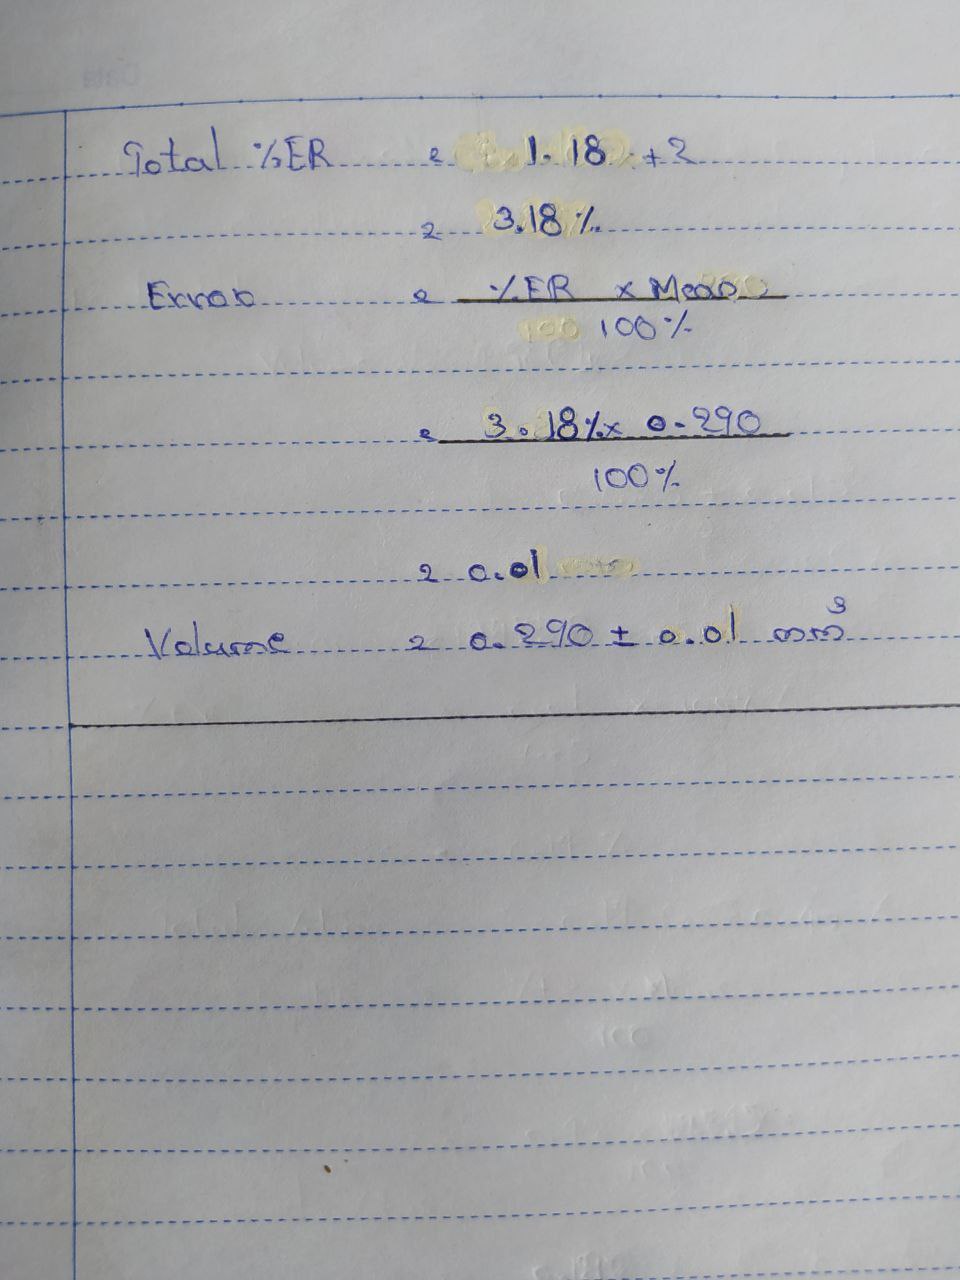 Total %ER = 1.18 + 2
= 3.18 %
Error = %ER x Mean
100 %
= 3.18% x 0.290
100 %
= 0.01
Volume = 0.290 ± 0.01 mm³